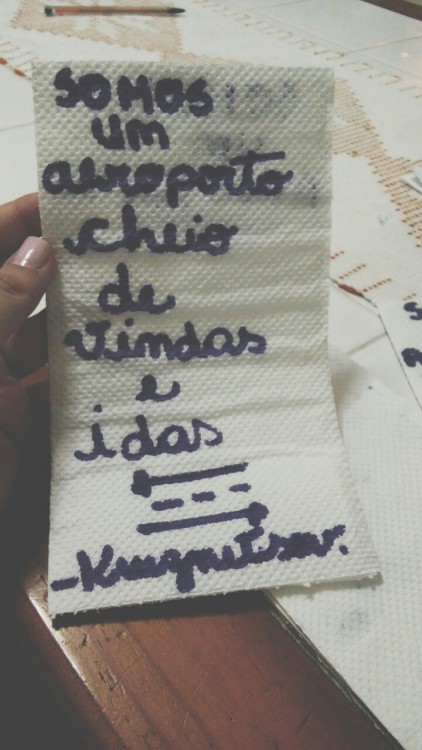 SOMOS
UM
aeroporto
cheio
de
vindas
e
idas